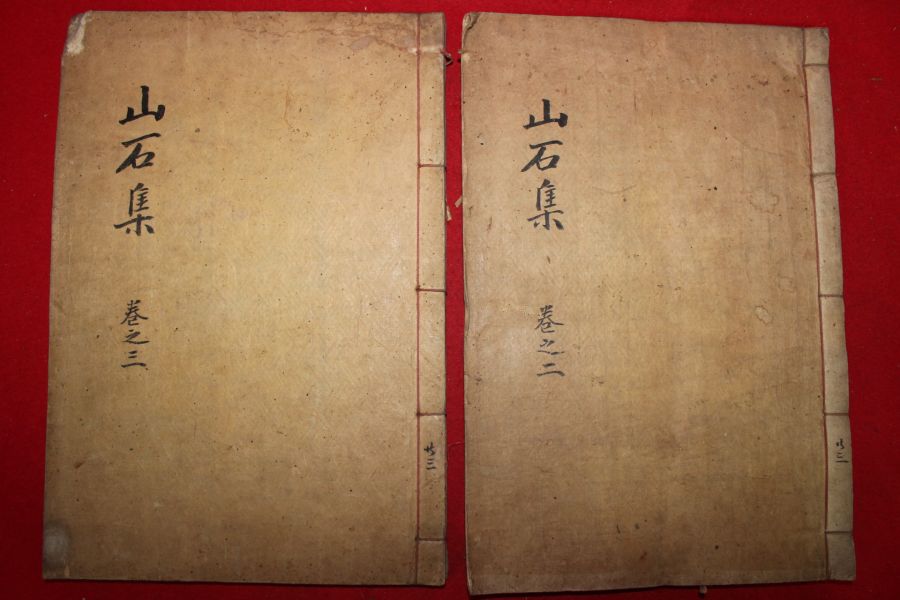 山石集
卷之三
共三
山石集
卷之二
共三